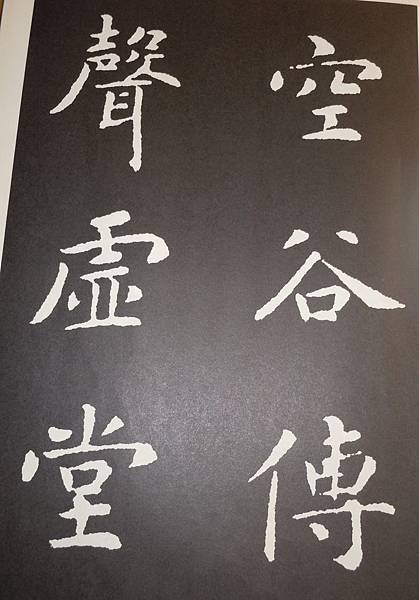 空谷傳
聲虛堂